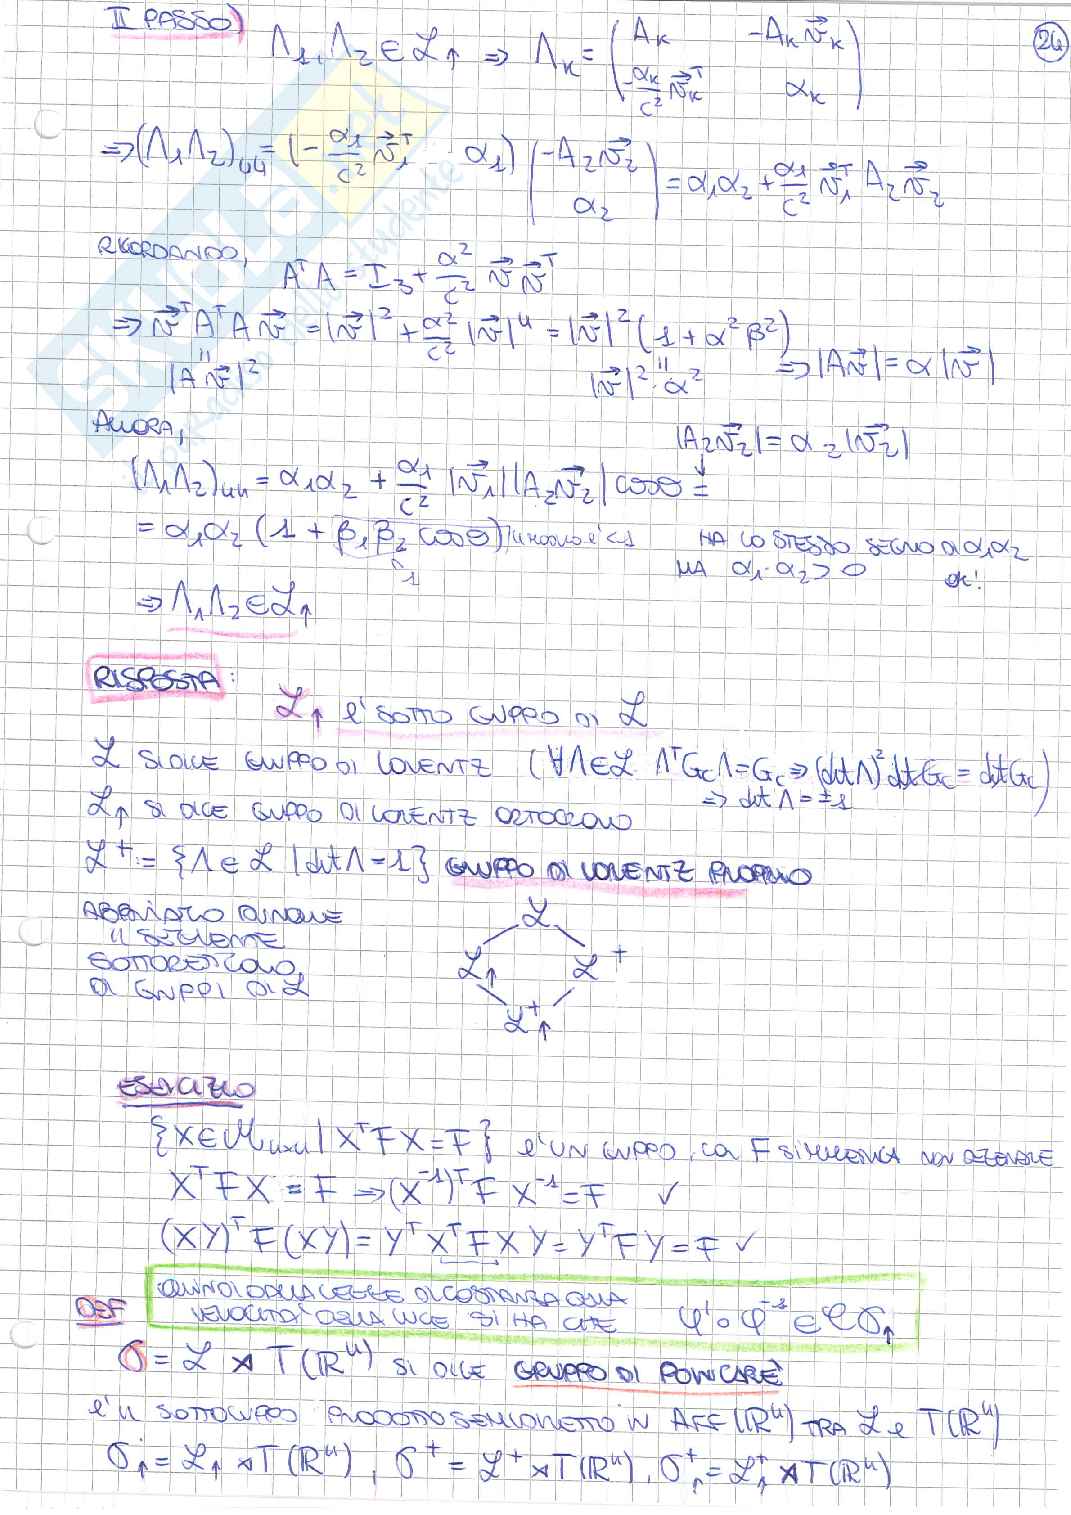 II PASSO)
24
Λ₁, Λ₂ ∈ ℒ↑ ⇒ Λₖ = ( Aₖ   -Aₖv⃗ₖ ; -αₖ/c² v⃗ₖᵀ   αₖ )
⇒ (Λ₁Λ₂)₄₄ = (-α₁/c² v⃗₁ᵀ   α₁) ( -A₂v⃗₂ ; α₂ ) = α₁α₂ + α₁/c² v⃗₁ᵀ A₂v⃗₂
RICORDANDO, AᵀA = I₃ + α²/c² v⃗ v⃗ᵀ
⇒ v⃗ᵀAᵀA v⃗ = |v⃗|² + α²/c² |v⃗|⁴ = |v⃗|² (1 + α²β²)
|Av⃗|²   |v⃗|²·α²   ⇒ |Av⃗| = α |v⃗|
ALLORA,   |A₂v⃗₂| = α₂|v⃗₂|
(Λ₁Λ₂)₄₄ = α₁α₂ + α₁/c² |v⃗₁||A₂v⃗₂| cosθ =
= α₁α₂ (1 + β₁β₂ cosθ)   HA LO STESSO SEGNO DI α₁α₂
MA α₁·α₂ > 0   ok!
⇒ Λ₁Λ₂ ∈ ℒ↑
RISPOSTA:
ℒ↑ è SOTTOGRUPPO DI ℒ
ℒ SI DICE GRUPPO DI LORENTZ (∀Λ∈ℒ ΛᵀG_cΛ = G_c ⇒ (detΛ)² detG_c = detG_c)
⇒ detΛ = ±1
ℒ↑ SI DICE GRUPPO DI LORENTZ ORTOCRONO
ℒ⁺ := {Λ ∈ ℒ | detΛ = 1} GRUPPO DI LORENTZ PROPRIO
ABBIAMO DUNQUE
IL SEGUENTE
SOTTORETICOLO
DI GRUPPI DI ℒ
ℒ
ℒ↑   ℒ⁺
ℒ⁺↑
ESERCIZIO
{X ∈ M₄ₓ₄ | XᵀFX = F} è UN GRUPPO, CON F SIMMETRICA NON DEGENERE
XᵀFX = F ⇒ (X⁻¹)ᵀF X⁻¹ = F ✓
(XY)ᵀF(XY) = YᵀXᵀFXY = YᵀFY = F ✓
QUINDI DALLA LEGGE DI COSTANZA DELLA
VELOCITÀ DELLA LUCE SI HA CHE φ'∘φ⁻¹ ∈ 𝒞σ↑
DEF
σ = ℒ ⋊ T(ℝ⁴) SI DICE GRUPPO DI POINCARÈ
è IL SOTTOGRUPPO PRODOTTO SEMIDIRETTO IN AFF(ℝ⁴) TRA ℒ e T(ℝ⁴)
σ↑ = ℒ↑ ⋊ T(ℝ⁴), σ⁺ = ℒ⁺ ⋊ T(ℝ⁴), σ⁺↑ = ℒ⁺↑ ⋊ T(ℝ⁴)